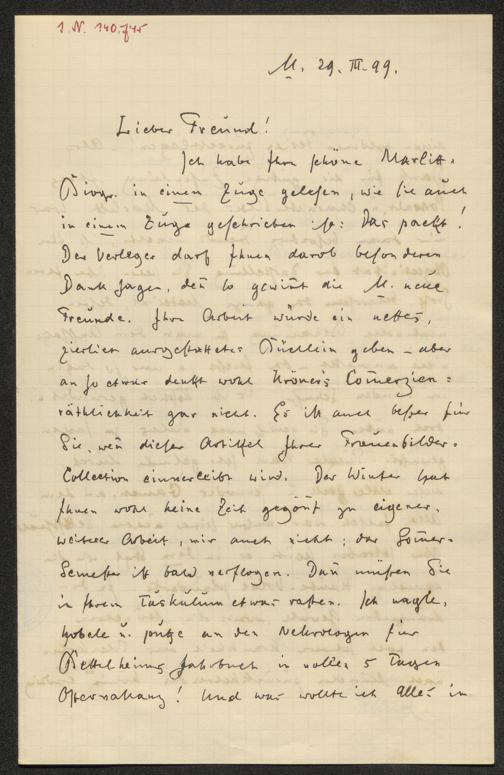 I. N. 140.745
M. 29. III. 99.
Lieber Freund!
Ich habe Ihre schöne Marlitt-
Biogr. in einem Zuge gelesen, wie sie auch
in einem Zuge geschrieben ist: Das packt!
Der Verleger darf Ihnen darob besonderen
Dank sagen, den̅ so gewin̅t die M. neue
Freunde. Ihre Arbeit würde ein nettes,
zierlich ausgestattetes Büchlein geben – aber
an so etwas denkt wohl Kröners Com̅erzien=
räthlichkeit gar nicht. Es ist auch besser für
Sie, wen̅ dieser Artikel Ihrer Frauenbilder-
Collection einverleibt wird. Der Winter hat
Ihnen wohl keine Zeit gegön̅t zu eigener,
weiterer Arbeit, mir auch nicht; das Som̅er-
Semester ist bald verflogen. Dan̅ müssen Sie
in Ihrem Tuskulum etwas rasten. Ich nagle,
hoble u. putze an den Nekrologen für
Bettelheims Jahrbuch in vollen 5 Tagen
Ostervakanz! Und was wollte ich alles in